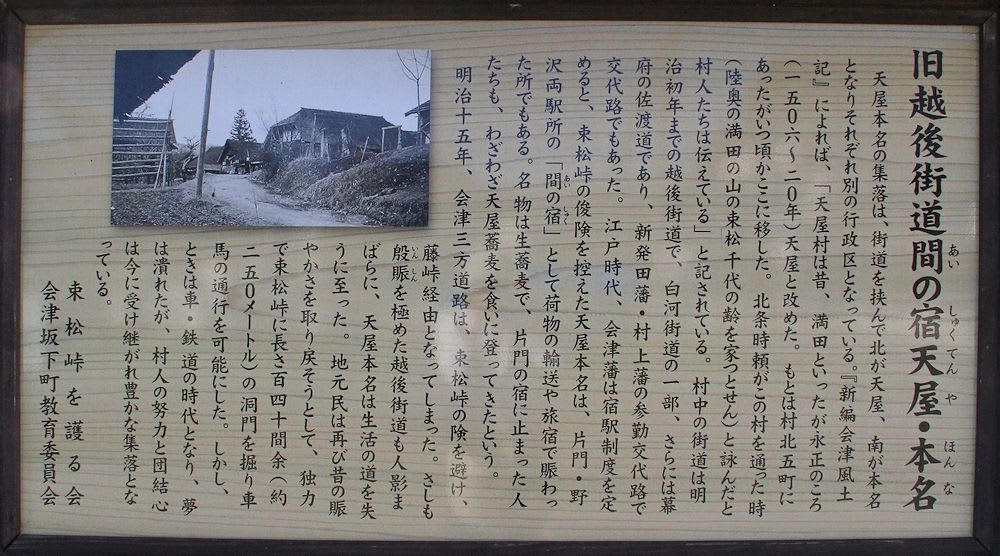 旧越後街道間の宿天屋・本名
あい しゅく てん や ほん な
天屋本名の集落は、街道を挟んで北が天屋、南が本名
となりそれぞれ別の行政区となっている。『新編会津風土
記』によれば、「天屋村は昔 満田といったが永正のころ
(一五〇六〜二〇年)天屋と改めた。もとは村北五町に
あったがいつ頃かここに移した。北条時頼がこの村を通った時
(陸奥の満田の山の束松千代の齢を家つとせん)と詠んだと
村人たちは伝えている」と記されている。村中の街道は明
治初年までの越後街道で、白河街道の一部、さらには幕
府の佐渡道であり、新発田藩・村上藩の参勤交代路で
交代路でもあった。江戸時代、会津藩は宿駅制度を定
めると、束松峠の俊険を控えた天屋本名は、片門・野
沢両駅所の「間の宿」として荷物の輸送や旅宿で賑わっ
あい しゅく
た所でもある。名物は生蕎麦で、片門の宿に止まった人
たちも、わざわざ天屋蕎麦を食いに登ってきたという。
明治十五年、会津三方道路は、束松峠の険を避け、
藤峠経由となってしまった。さしも
殷賑を極めた越後街道も人影ま
いん しん
ばらに、天屋本名は生活の道を失
うに至った。地元民は再び昔の賑
やかさを取り戻そうとして、独力
で束松峠に長さ百四十間余(約
二五〇メートル)の洞門を掘り車
馬の通行を可能にした。しかし、
ときは車・鉄道の時代となり、夢
は潰れたが、村人の努力と団結心
は今に受け継がれ豊かな集落とな
っている。
束松峠を護る会
会津坂下町教育委員会